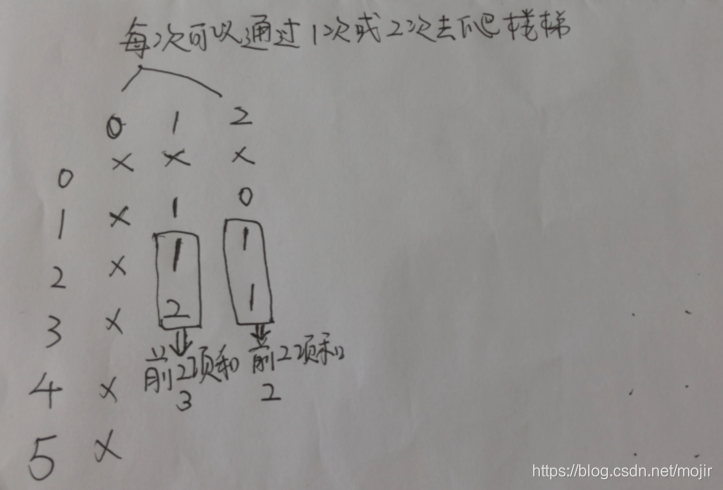 每次可以通过1次或2次去爬楼梯
0 1 2
0 × × ×
1 × 1 0
2 × 1 1
3 × 2 1
前2项和 前2项和
4 × 3 2
5 ×
https://blog.csdn.net/mojir